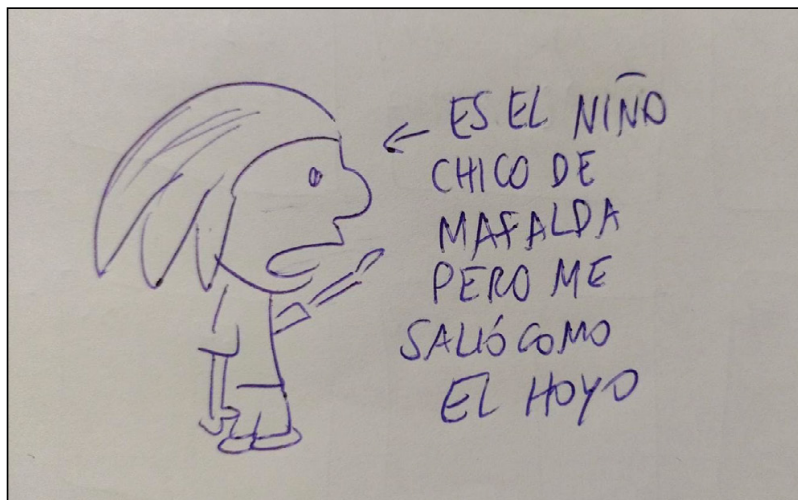 ← ES EL NIÑO
CHICO DE
MAFALDA
PERO ME
SALIÓ COMO
EL HOYO